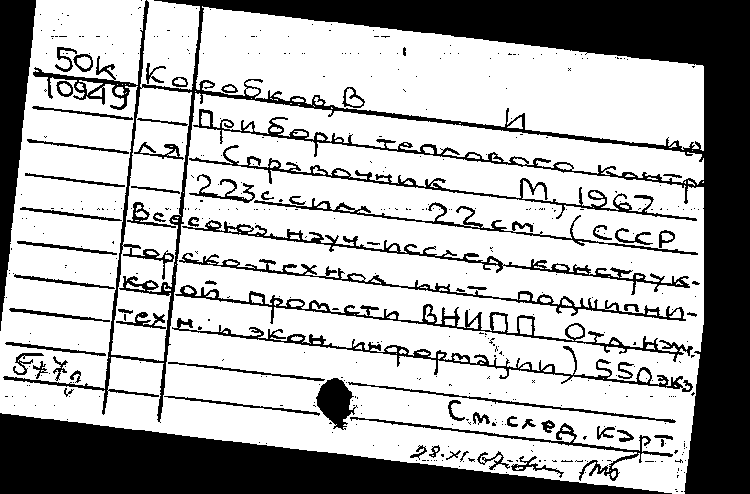 50к
10949
Коробков, В И и др
Приборы теплового контр
ля. Справочник М., 1967
223с. с илл. 22 см. (СССР
Всесоюз. науч.-исслед. конструк-
торско-технол ин-т подшипни-
ковой пром-сти ВНИПП Отд. науч.-
техн. и экон. информации) 550 экз.
См. след. карт.
28.XI.67